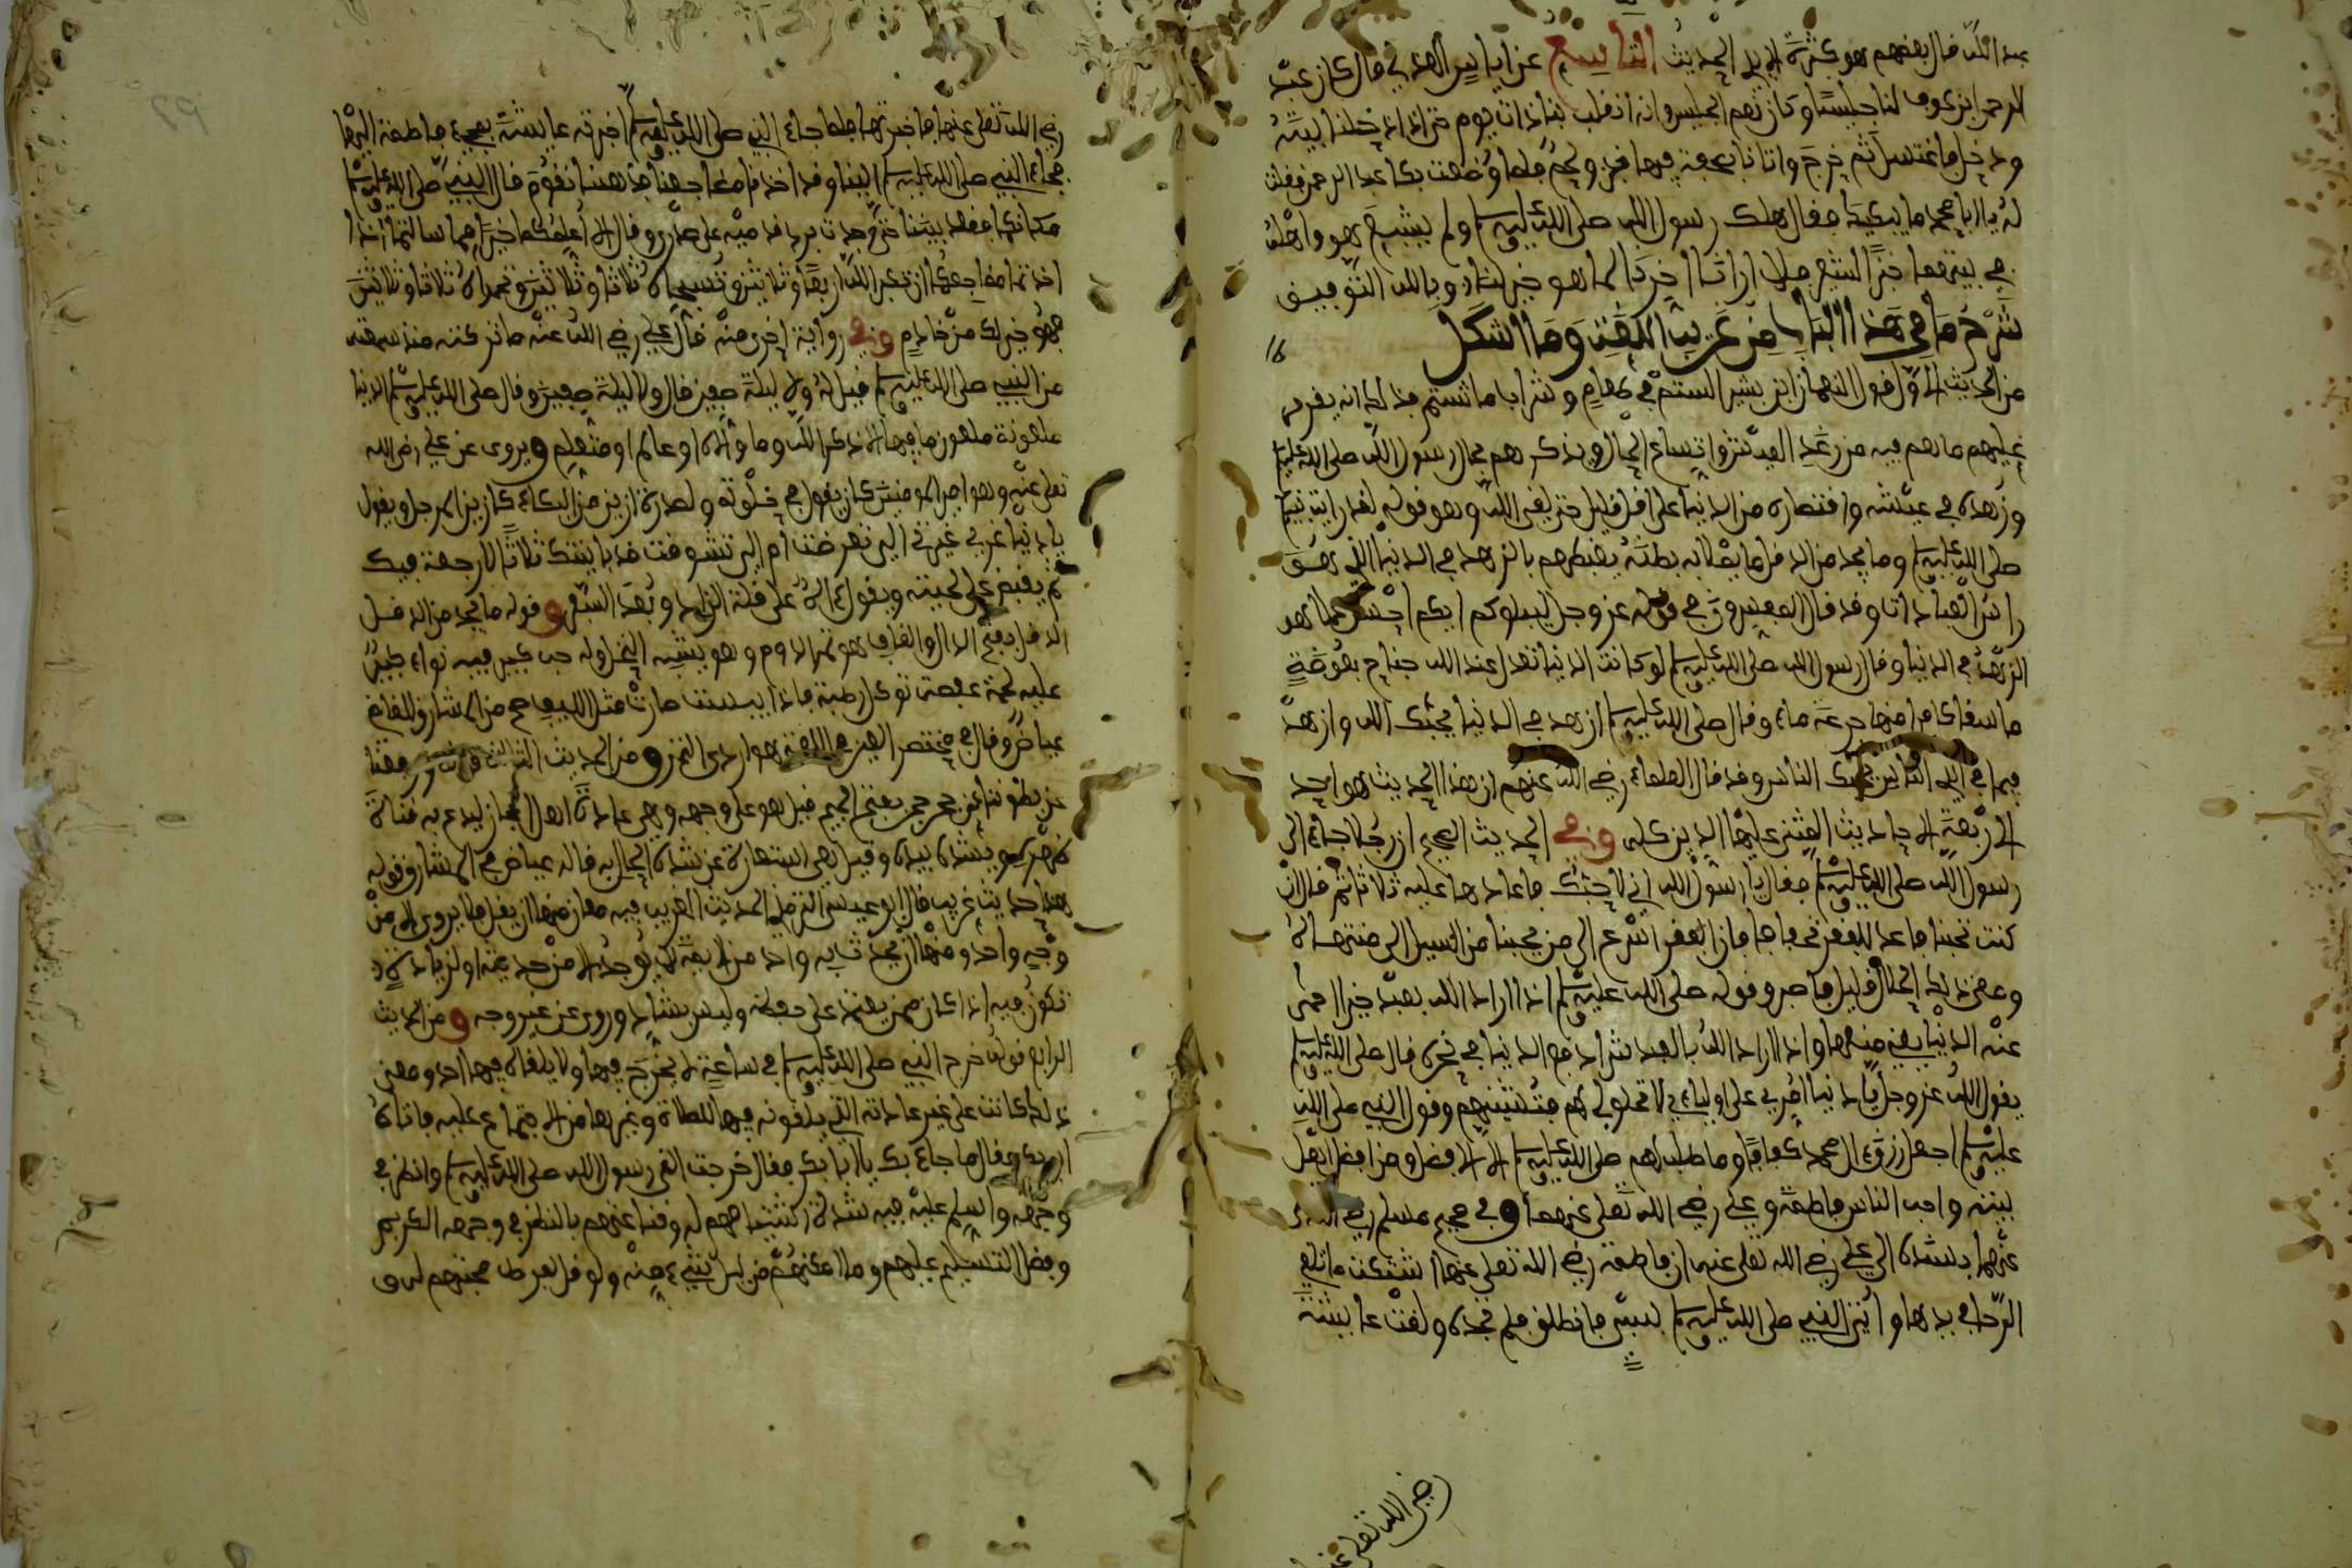 عبد الله قال بعضهم هو كثرة الايد الحديث التاسع عن اياس الهذلي قال كان عبد
الرحمن ابن عوف لنا جليسا وكان نعم الجليس وانه انقلب بنا ذات يوم حتى اذا دخلنا بيته
ودخل فاغتسل ثم خرج واتانا بصحفة فيها خبز ولحم فلما وضعت بكا عبد الرحمن فقلت
له يا ابا محمد ما يبكيك فقال هلك رسول الله صلى الله عليه وسلم ولم يشبع هو واهل
بيته من خبز الشعير فلا ارانا اخرنا لما هو خير لنا وبالله التوفيق
شرح ما في هذا الباب من غريب اللغة وما اشكل
من الحديث الاول قول النعمان ابن بشير الستم في طعام وشراب ما شئتم فذلك انه يقرر
عليهم ما هم فيه من رغد العيش واتساع الحال ويذكرهم بحال رسول الله صلى الله عليه وسلم
وزهده في عيشه واقتصاره من الدنيا على اقل قليل حتى لقي الله وهو قوله لقد رايت نبيكم
صلى الله عليه وسلم وما يجد من الدقل ما يملا به بطنه يغبطهم بالزهد في الدنيا الذي هو
راس العبادات وقد قال المفسرون في قوله عز وجل ليبلوكم ايكم احسن عملا هو
الزهد في الدنيا وقال رسول الله صلى الله عليه وسلم لو كانت الدنيا تعدل عند الله جناح بعوضة
ما سقا كافرا منها جرعة ماء وقال صلى الله عليه وسلم ازهد في الدنيا يحبك الله وازهد
فيما في ايدي الناس يحبك الناس وقد قال العلماء رضي الله عنهم ان هذا الحديث هو احد
الاربعة الاحاديث المبني عليها الدين كله وفي الحديث الصحيح ان رجلا جاء الى
رسول الله صلى الله عليه وسلم فقال يا رسول الله اني لاحبك فاعادها عليه ثلاثا ثم قال ان
كنت تحبنا فاعد للفقر تجفافا فان الفقر اسرع الى من يحبنا من السيل الى منتهاه
وعن ذلك الحال قليل فاصبر وقوله صلى الله عليه وسلم اذا اراد الله بعبد خيرا احمى
عنه الدنيا يعني منعها واذا اراد الله بالعبد شرا دفع الدنيا في نحره قال صلى الله عليه وسلم
يقول الله عز وجل يا دنيا امري على اوليائي لا تحلولي لهم فتفتنيهم وقول النبي صلى الله
عليه وسلم اجعل رزق ال محمد كفافا وما طلب لهم صلى الله عليه وسلم الا الافضل ومن افضل اهل
بيته واحب الناس فاطمة وعلي رضي الله تعلى عنهما وفي صحيح مسلم رضي الله
عنهما بسنده الى علي رضي الله تعلى عنه ان فاطمة رضي الله تعلى عنها اشتكت ما تلقى
الرحا في يدها واتى النبي صلى الله عليه وسلم بسبي فانطلقت فلم تجده ولقت عايشة
رضي الله تعلى عنها
رضي الله تعلى عنها فاخبرتها فلما جاء النبي صلى الله عليه وسلم اخبرته عايشة بمجيء فاطمة اليها
فجاء النبي صلى الله عليه وسلم الينا وقد اخذنا مضاجعنا فذهبنا نقوم فقال النبي صلى الله عليه وسلم
مكانكما فقعد بيننا حتى وجدت برد قدميه على صدري وقال الا اعلمكما خيرا مما سالتما اذا
اخذتما مضاجعكما ان تكبرا الله اربعا وثلاثين وتسبحاه ثلاثا وثلاثين وتحمداه ثلاثا وثلاثين
فهو خير لكما من خادم وفي رواية اخرى منه قال علي رضي الله عنه ما تركته منذ سمعته
من النبي صلى الله عليه وسلم قيل له ولا ليلة صفين قال ولا ليلة صفين وقال صلى الله عليه وسلم الدنيا
ملعونة ملعون ما فيها الا ذكر الله وما والاه او عالم او متعلم ويروى عن علي رضي الله
تعلى عنه وهو امير المومنين كان يقول في خلوته ولصدره ازيز من البكاء كازيز المرجل ويقول
يا دنيا غري غيري الي تعرضت ام الي تشوفت قد باينتك ثلاثا لا رجعة فيك
ثم يقبض على لحيته ويقول اه على قلة الزاد وبعد السفر وقوله ما يجد من الدقل
الدقل بفتح الدال والقاف هو ثمر الدوم وهو يشبه النخل وله حب كبير فيه نواء كبير
عليه لحمة عفصة توكل رطبة فاذا يبست صارت مثل الليف صح من المشارق للقاضي
عياض وقال في مختصر العين في اللغة هو اردى التمر ومن الحديث الثالث
عن بطوننا عن حجر حجر بفتح الجيم قيل هو على وجهه وهي عادة اهل الحجاز
يشده بيده وقيل هي استعارة عن شدة الحال به قاله عياض في المشارق وقوله
هذا حديث غريب قال ابو عيسى الترمذي الحديث الغريب فيه معان منها ان يقل ما يروى الا من
وجه واحد ومنها ان يحدث به واحد من الايمة لا يوجد الا من حديثه او لزيادة
تكون فيه اذا كان ممن يعتمد على حفظه وليس بشاذ وروي عن غير وجه ومن الحديث
الرابع قوله خرج النبي صلى الله عليه وسلم في ساعة لا يخرج فيها ولا يلقاه فيها احد ومعنى
ذلك كانت على غير عادته التي يلقونه فيها للصلاة وغيرها من الاجتماع عليه فاتاه
ابو بكر فقال ما جاء بك يا ابا بكر فقال خرجت القى رسول الله صلى الله عليه وسلم وانظر في
وجهه واسلم عليه فيه شدة اكتشافهم له وقنا عنهم بالنظر في وجهه الكريم
وفضل التسليم عليهم وما اغناهم عن كل شيء منه ولو فر لفرط محبتهم له